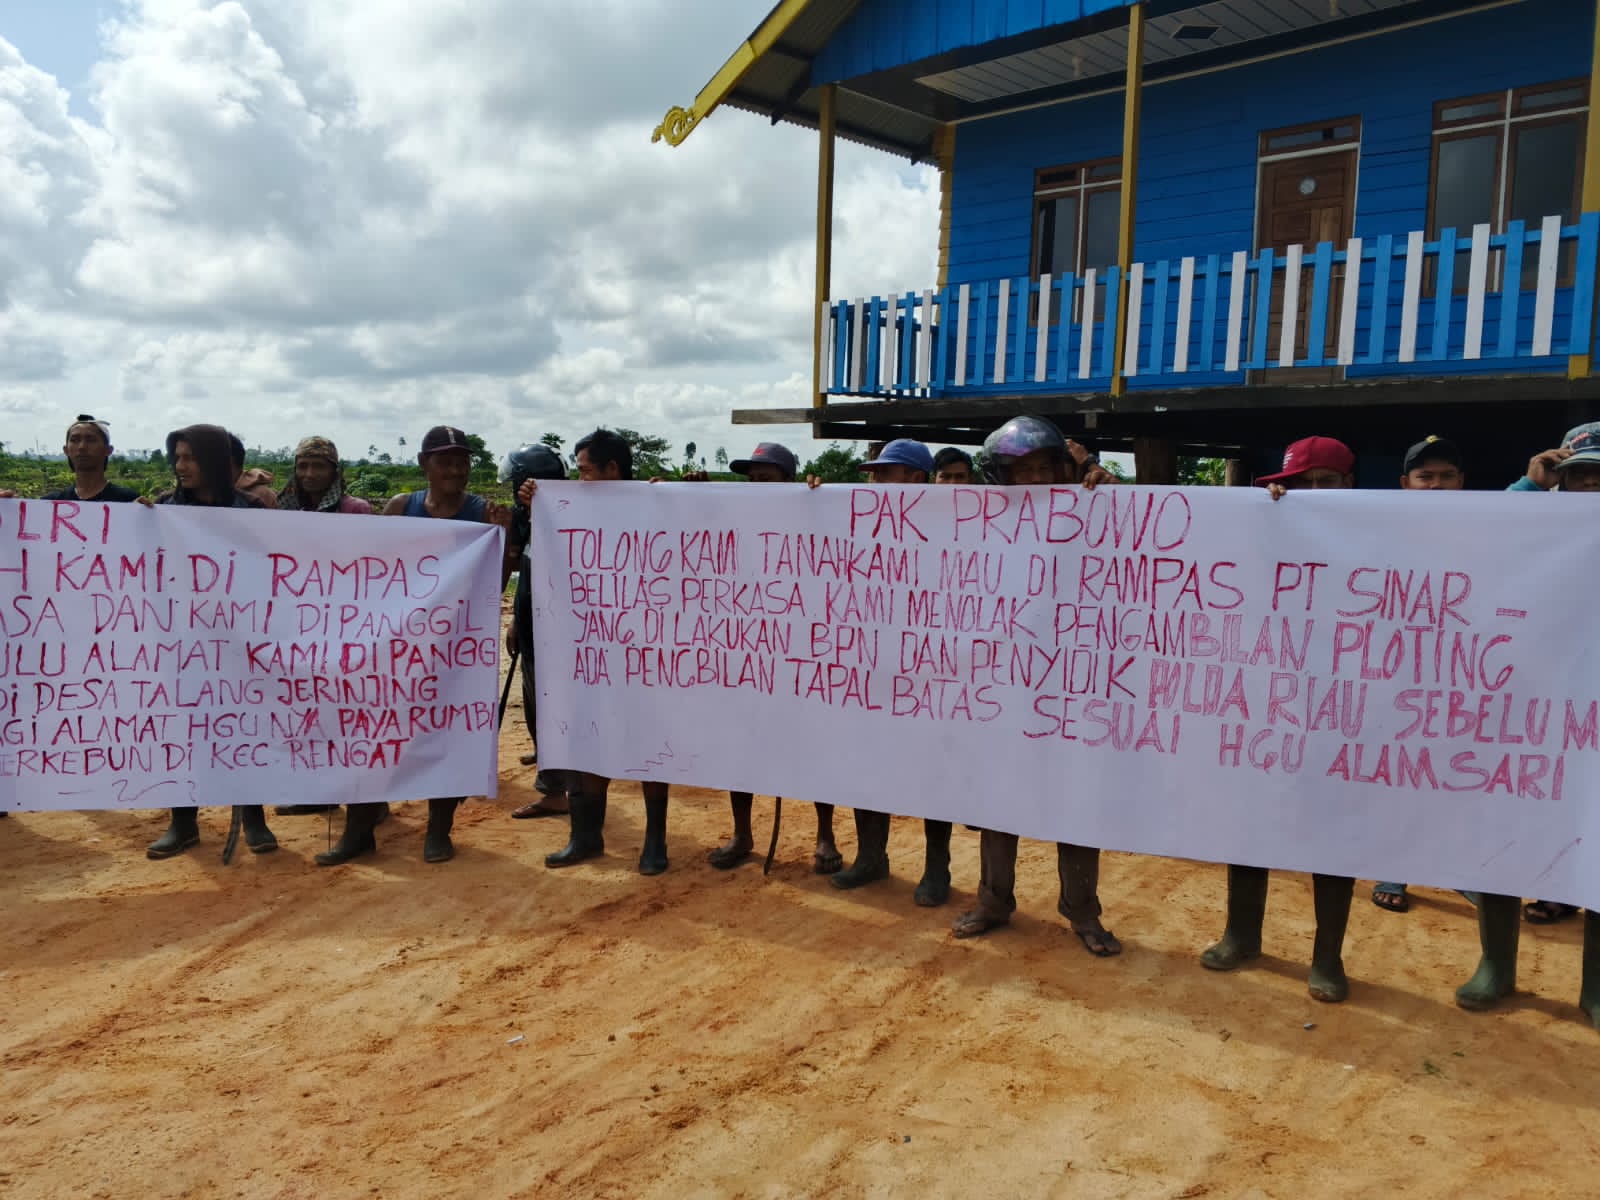 OLRI
H KAMI. Di RAMPAS
ASA DAN KAMI DIPANGGIL
ULU ALAMAT KAMI DI PANGG
Di DESA TALANG JERINJING
AGI ALAMAT HGU NYA PAYA RUMBI
ERKEBUN DI KEC. RENGAT
PAK PRABOWO
TOLONG KAMI TANAH KAMI MAU DI RAMPAS PT SINAR -
BELILAS PERKASA. KAMI MENOLAK PENGAMBILAN PLOTING
YANG DI LAKUKAN BPN DAN PENYIDIK POLDA RIAU SEBELUM
ADA PENGBILAN TAPAL BATAS SESUAI HGU ALAMSARI